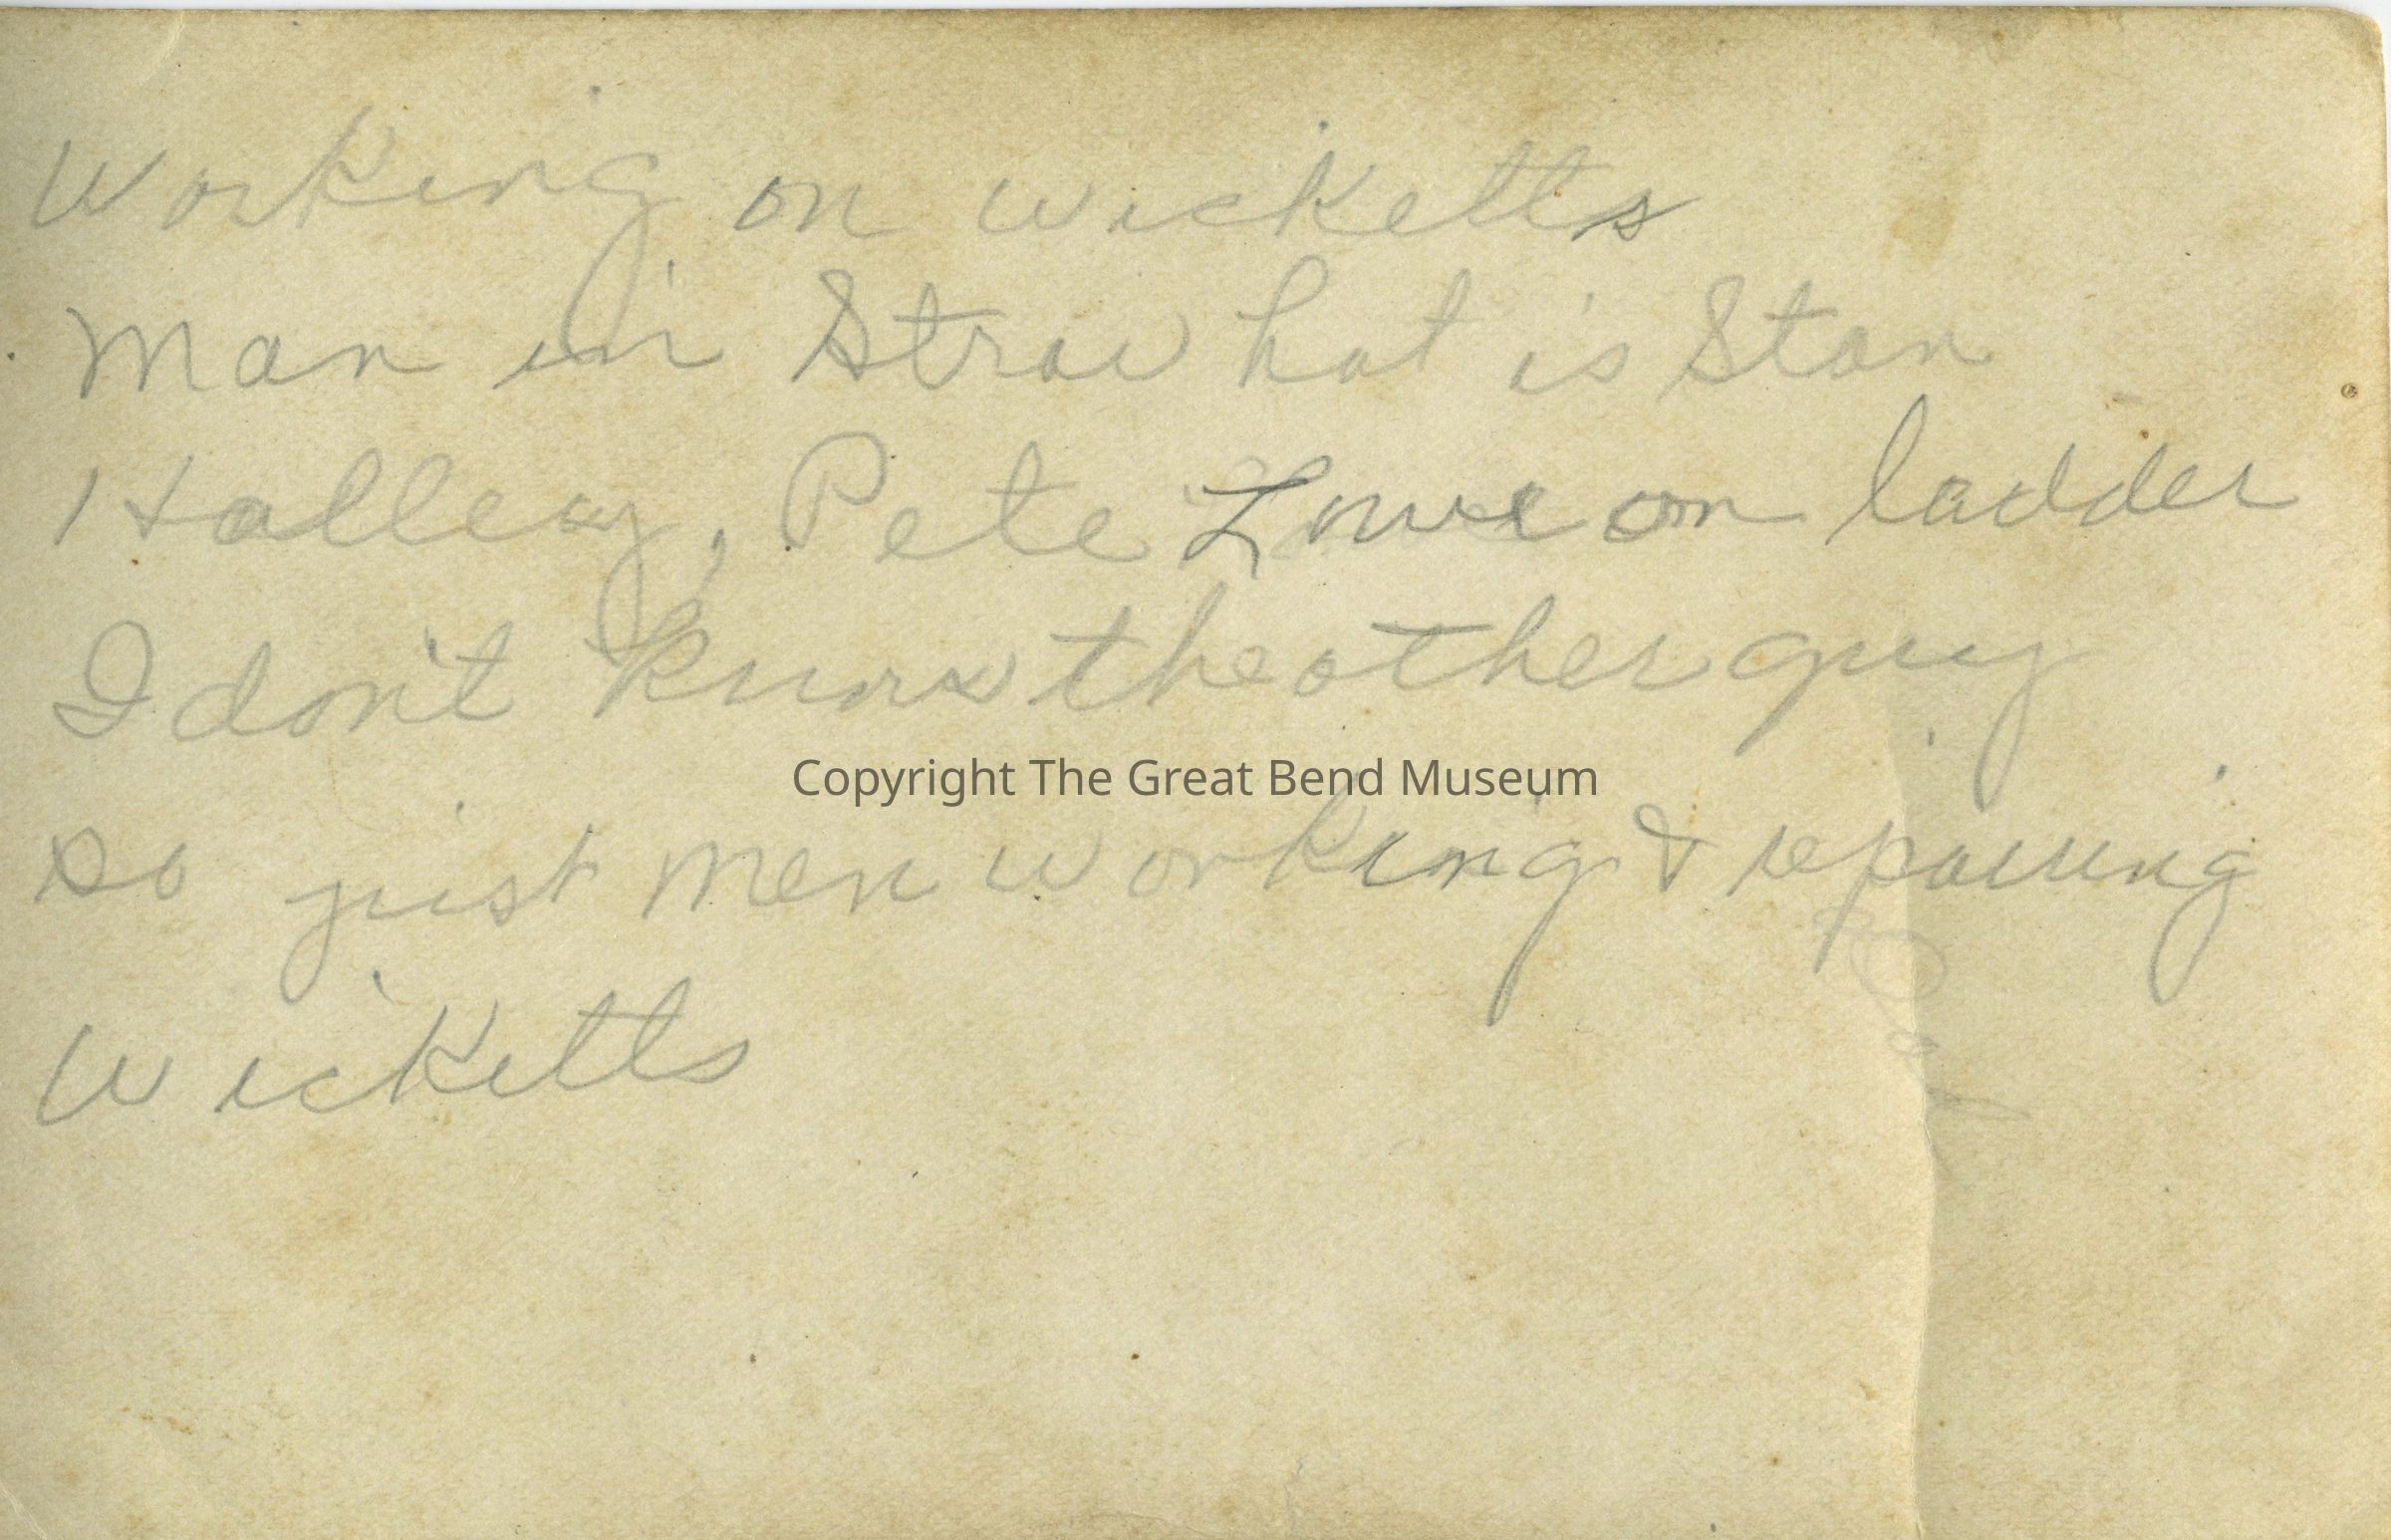 Working on wicketts
Man in Straw hat is Stan
Halley, Pete Lowe on ladder
I don't know the other guy
Copyright The Great Bend Museum
so just men working & repairing
Wicketts